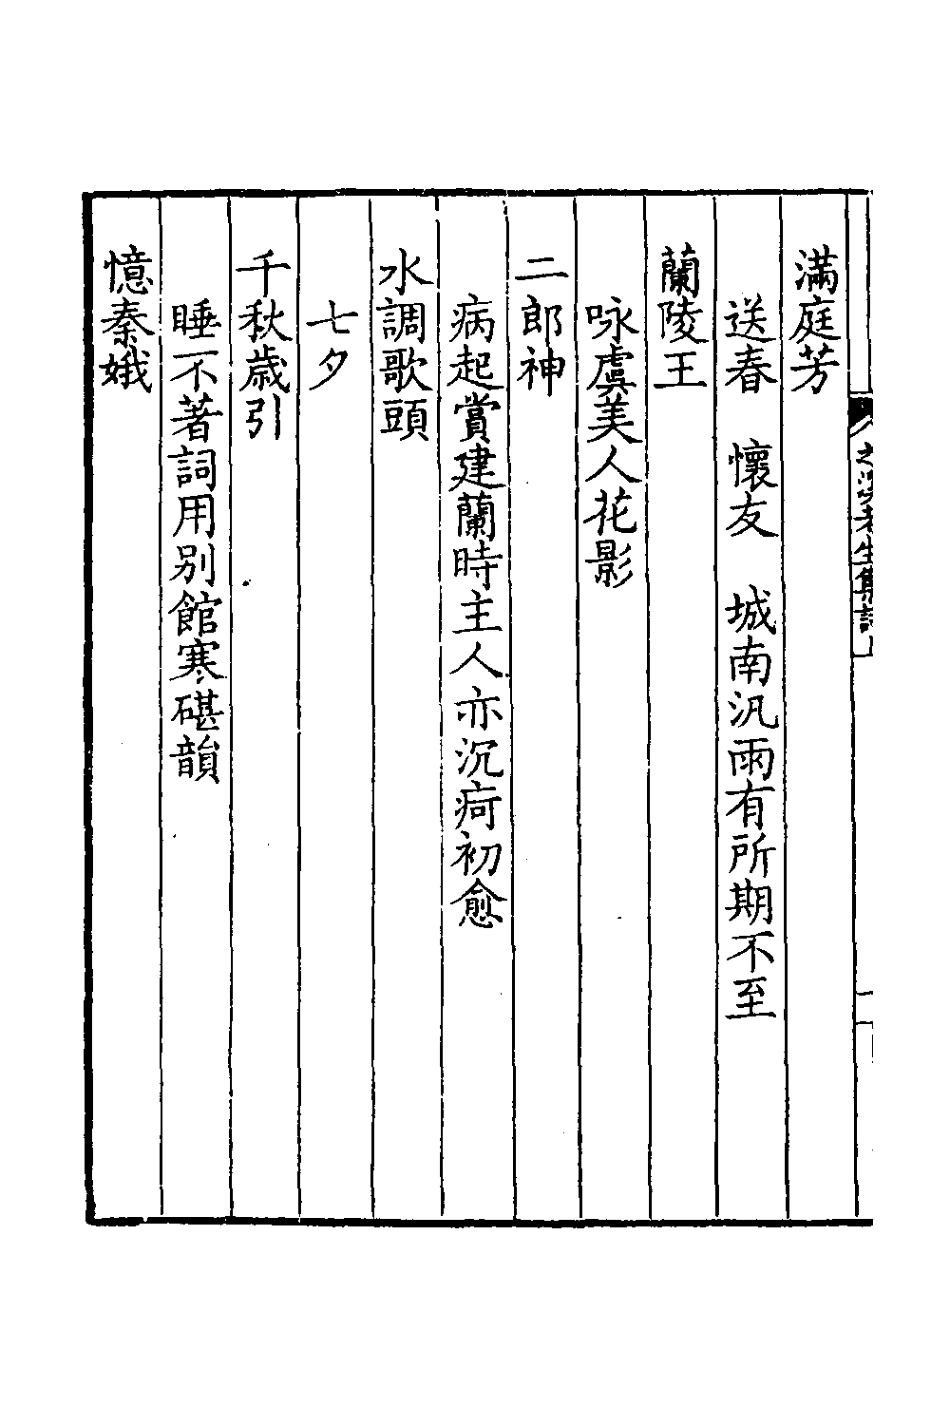 滿庭芳
送春　懷友　城南汎雨有所期不至
蘭陵王
咏虞美人花影
二郎神
病起賞建蘭時主人亦沉疴初愈
水調歌頭
七夕
千秋歲引
睡不著詞用别館寒碪韻
憶秦娥